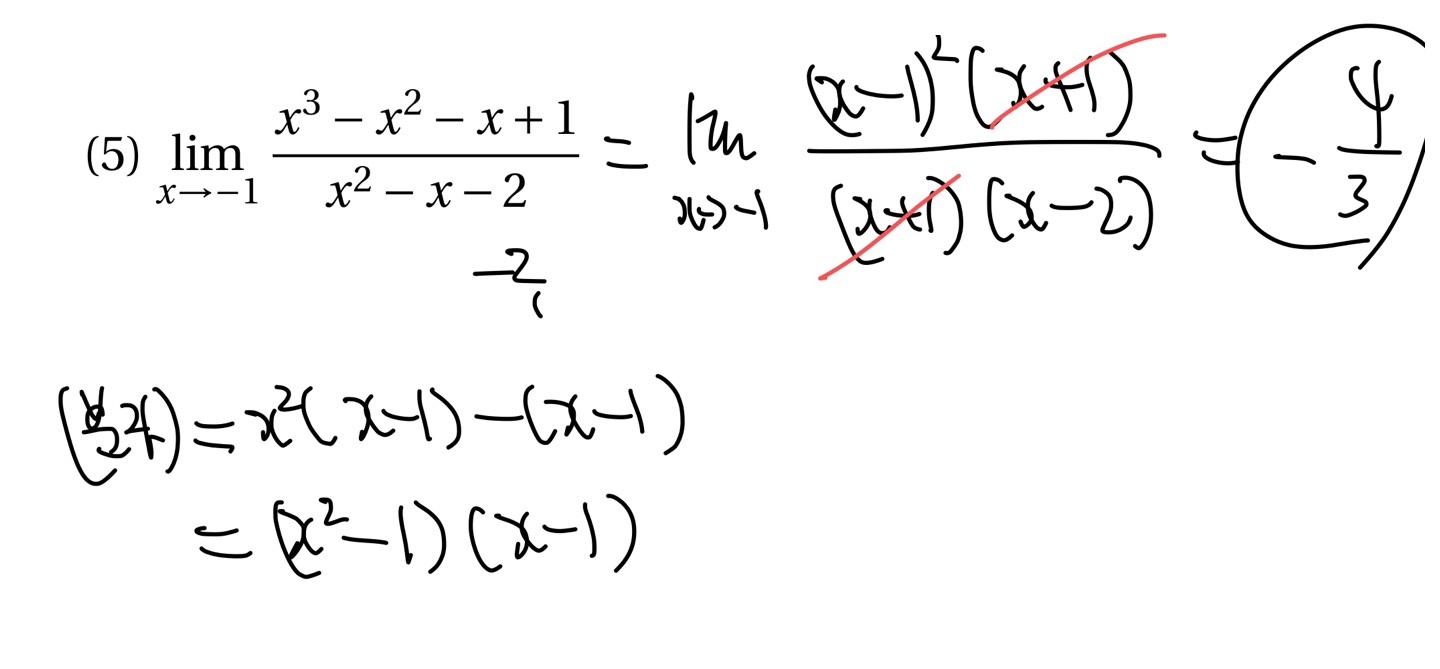 (5) lim_{x→-1} (x³ − x² − x + 1)/(x² − x − 2) = lim_{x→-1} ((x−1)²(x+1))/((x+1)(x−2)) = −4/3
−2
1
(분자) = x²(x−1)−(x−1)
= (x²−1)(x−1)